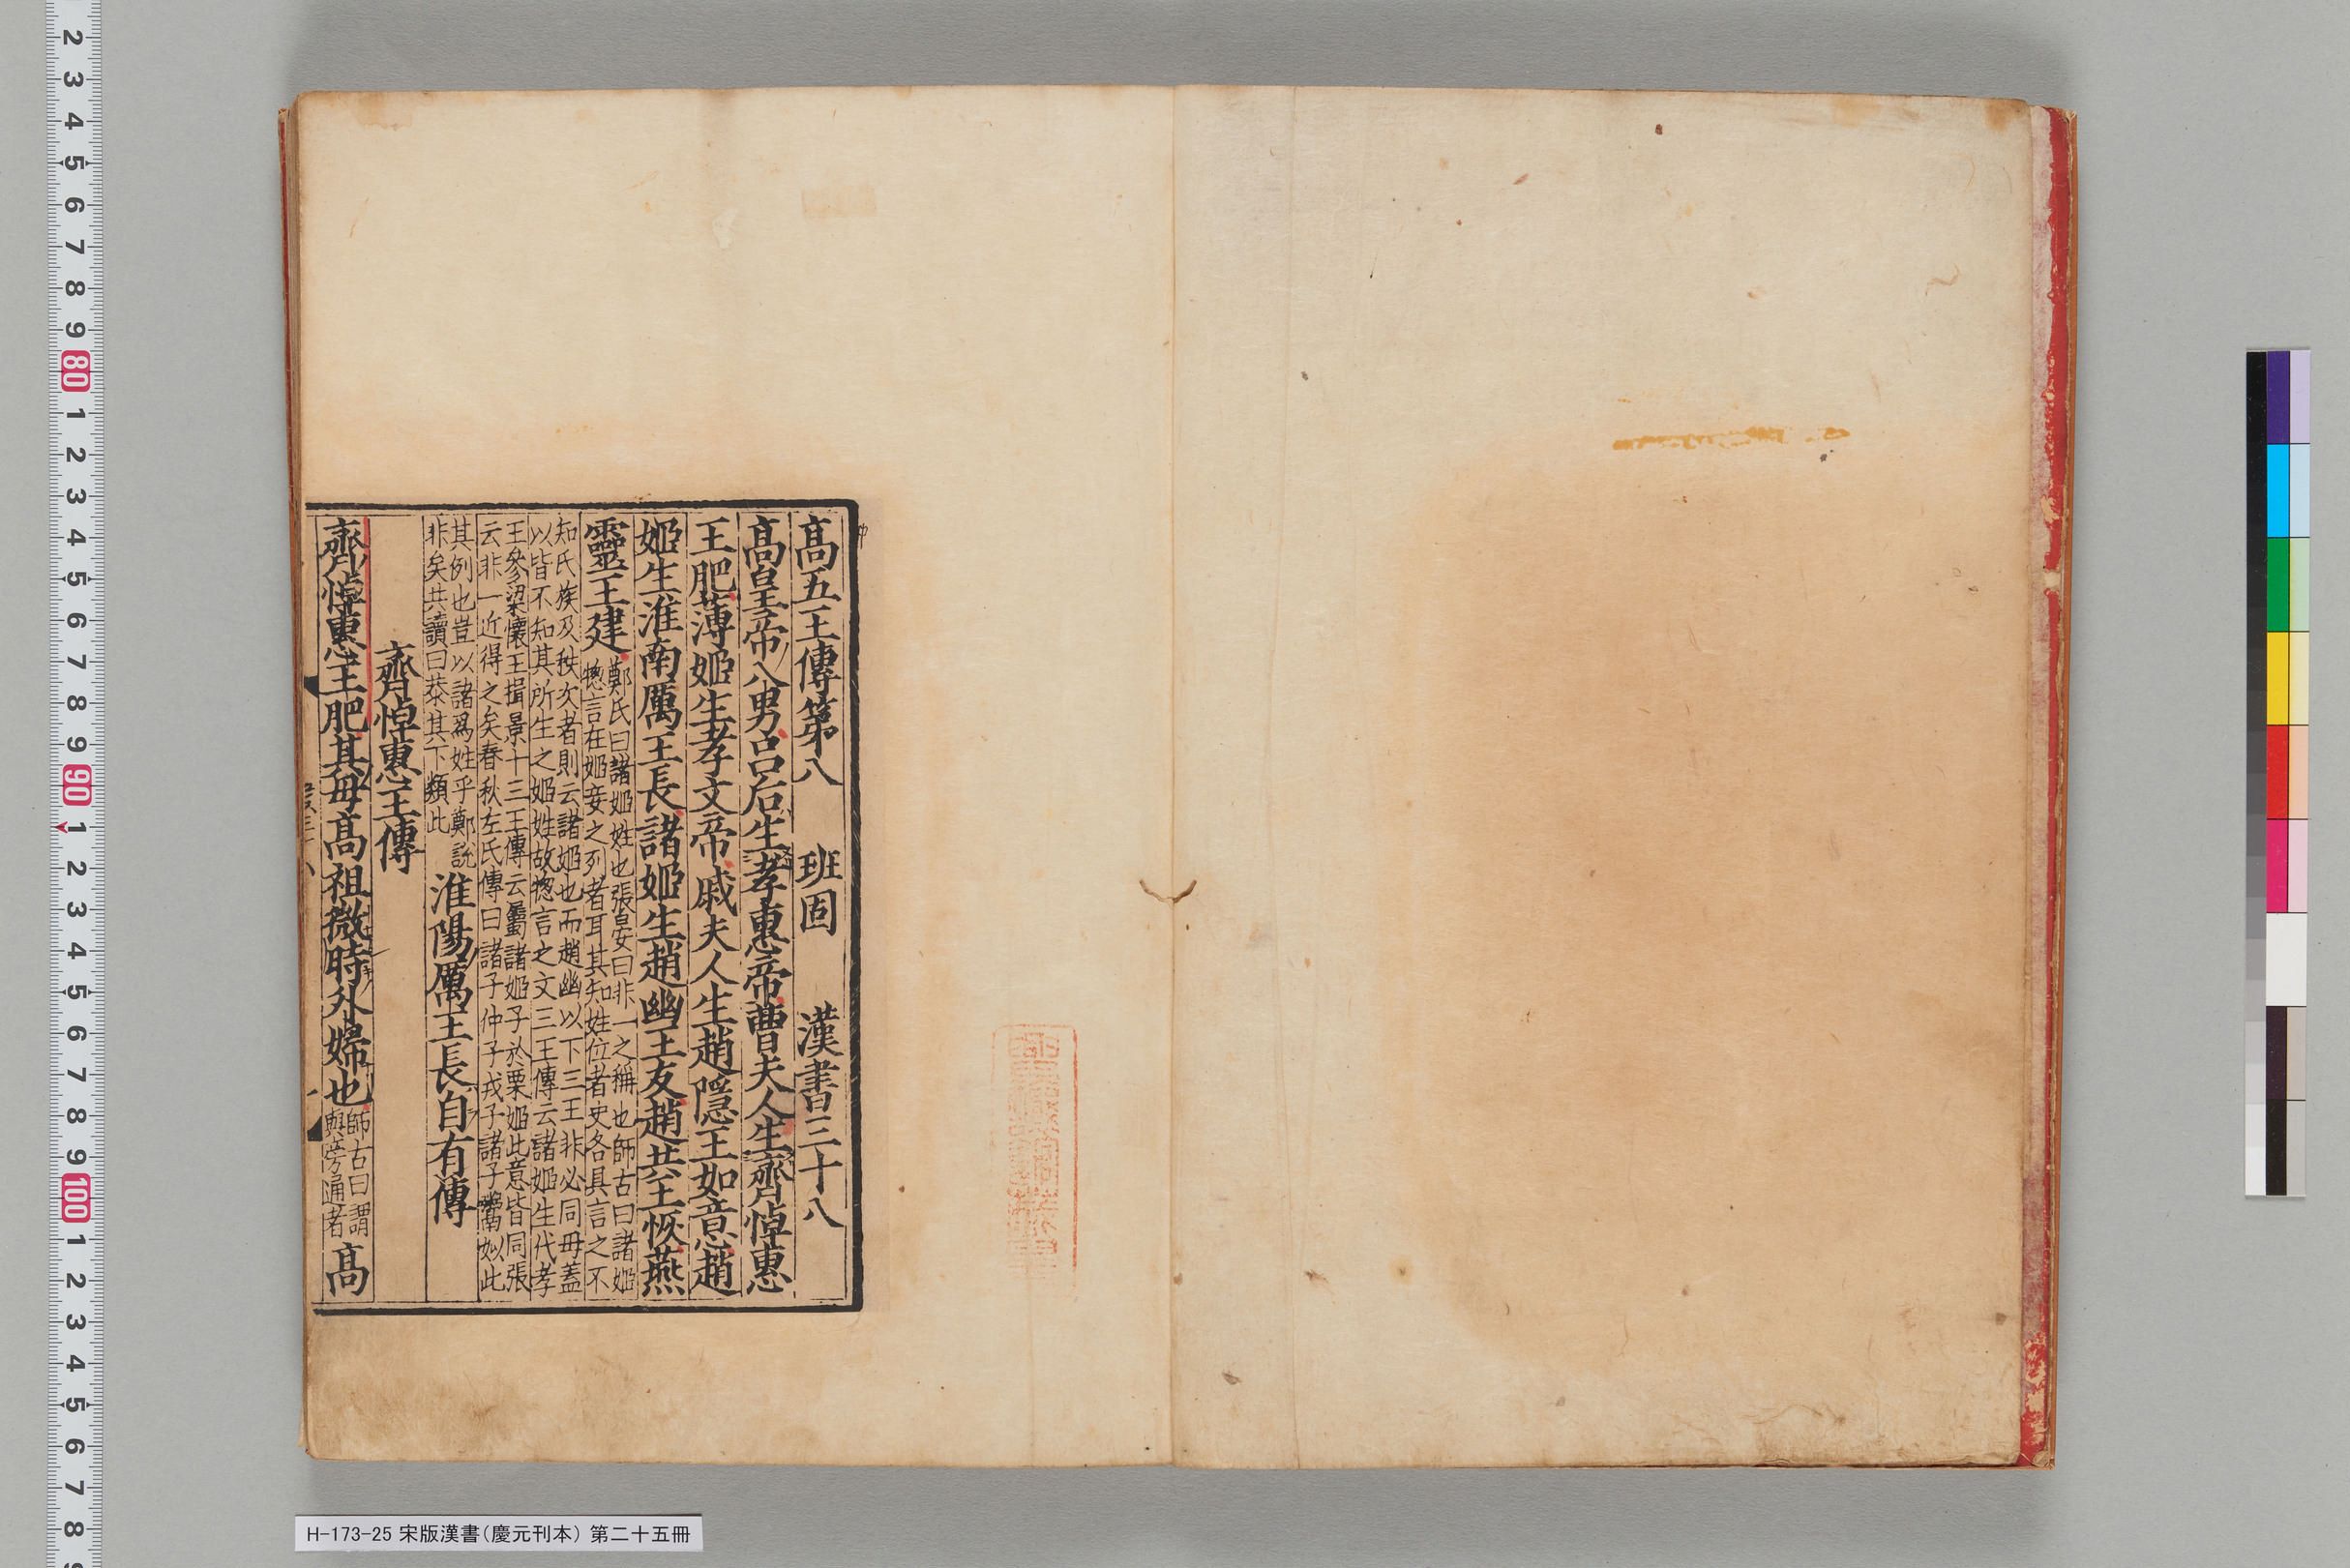 高五王傳第八 班固 漢書三十八
高皇帝八男呂后生孝惠帝曹夫人生齊悼惠
王肥薄姬生孝文帝戚夫人生趙隱王如意趙
姬生淮南厲王長諸姬生趙幽王友趙共王恢燕
靈王建
鄭氏曰諸姬姓也張晏曰非一之稱也師古曰諸姬
揔言在姬妾之列者耳其知姓位者史各具言之不
知氏族及秩次者則云諸姬也而趙幽以下三王非必同母蓋
以皆不知其所生之姬姓故揔言之文三王傳云諸姬生代孝
王參梁懷王揖景十三王傳云屬諸姬子於栗姬此意皆同張
云非一近得之矣春秋左氏傳曰諸子仲子戎子諸子鬻姒此
其例也豈以諸爲姓乎鄭說
非矣共讀曰恭其下類此
淮陽厲王長自有傳
齊悼惠王傳
齊悼惠王肥其母高祖微時外婦也
師古曰謂
與旁通者
高
H-173-25 宋版漢書（慶元刊本） 第二十五冊
2
3
4
5
6
7
8
9
80
1
2
3
4
5
6
7
8
9
90
1
2
3
4
5
6
7
8
9
100
1
2
3
4
5
6
7
8